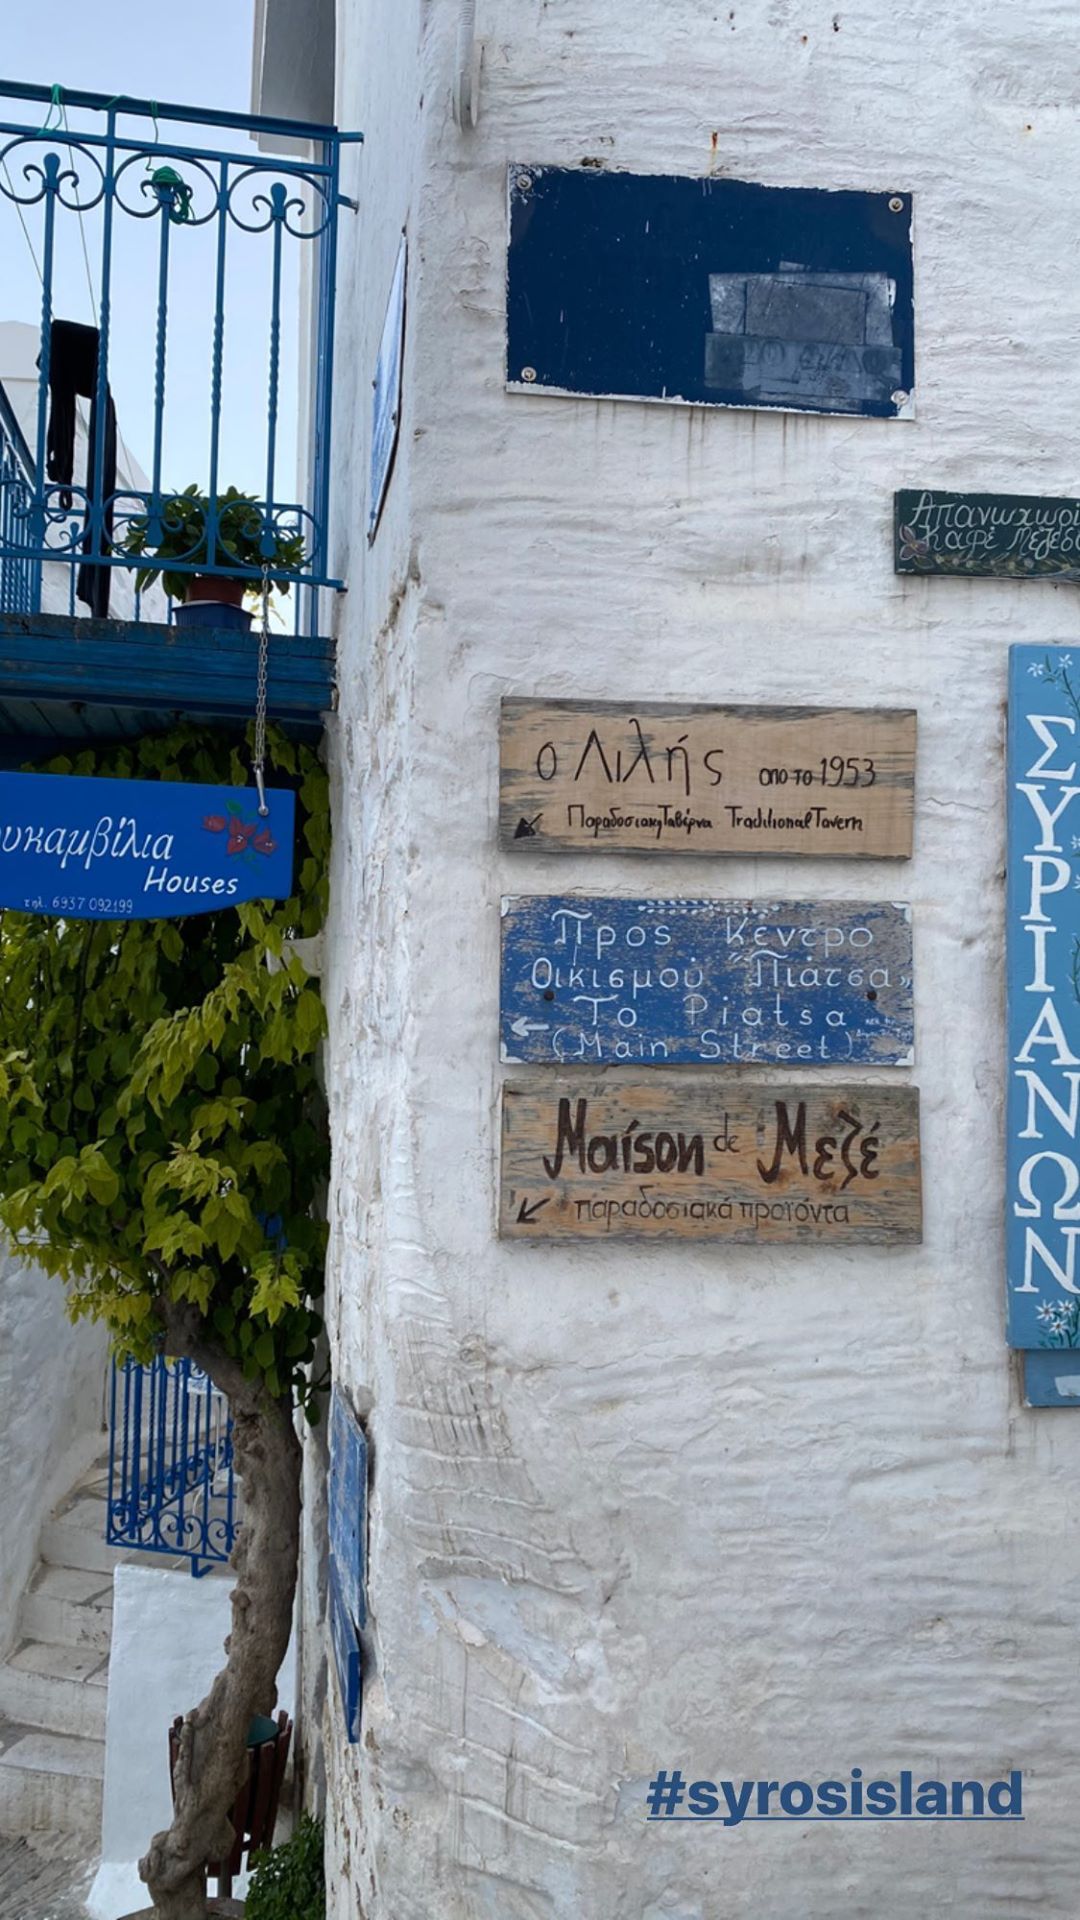 Απανωχωρί
καφέ μεζεδ
ο Λιλής απο το 1953
Παραδοσιακη Ταβέρνα Traditional Tavern
υκαμβίλια
Houses
τηλ. 6937 092199
Προς Κέντρο
Οικισμού "Πιάτσα"
To Piatsa
(Main Street)
Maíson de Μεζέ
παραδοσιακά προϊόντα
ΣΥΡΙΑΝΩΝ
#syrosisland